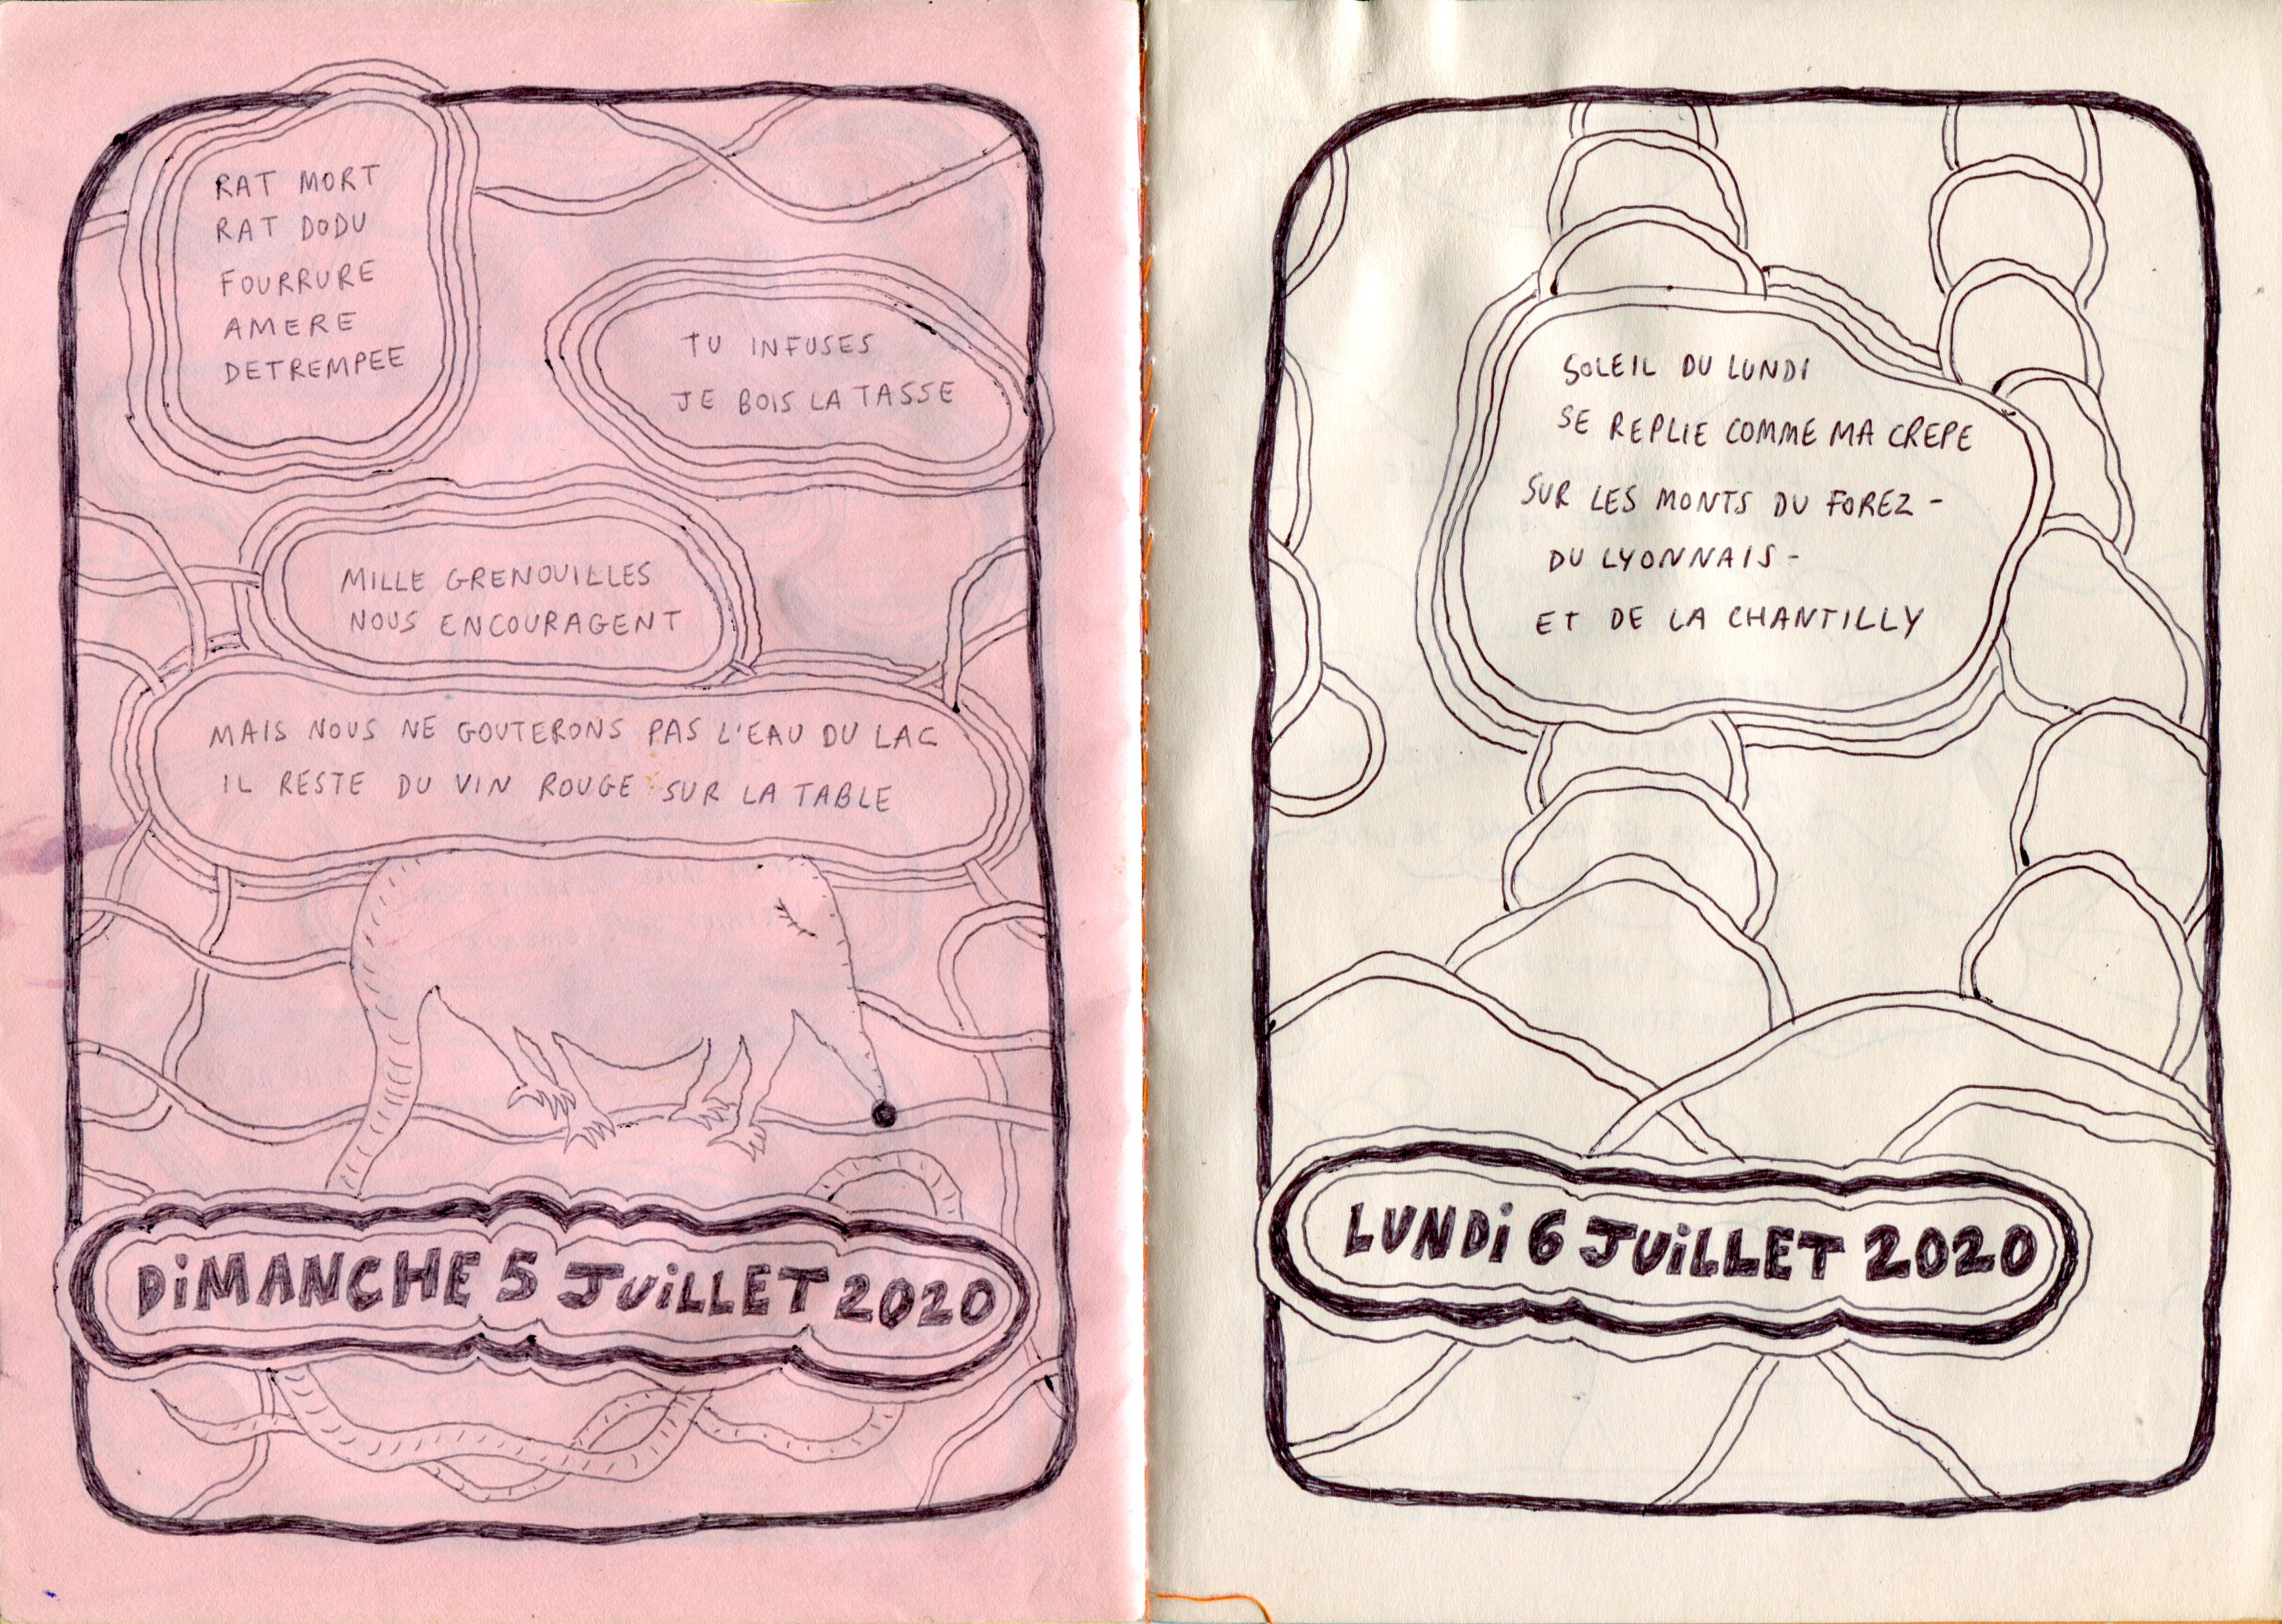 RAT MORT
RAT DODU
FOURRURE
AMERE
DETREMPEE
TU INFUSES
JE BOIS LA TASSE
MILLE GRENOUILLES
NOUS ENCOURAGENT
MAIS NOUS NE GOUTERONS PAS L'EAU DU LAC
IL RESTE DU VIN ROUGE SUR LA TABLE
DiMANCHE 5 JUiLLET 2020
SOLEIL DU LUNDI
SE REPLIE COMME MA CREPE
SUR LES MONTS DU FOREZ -
DU LYONNAIS -
ET DE LA CHANTILLY
LUNDi 6 JUiLLET 2020